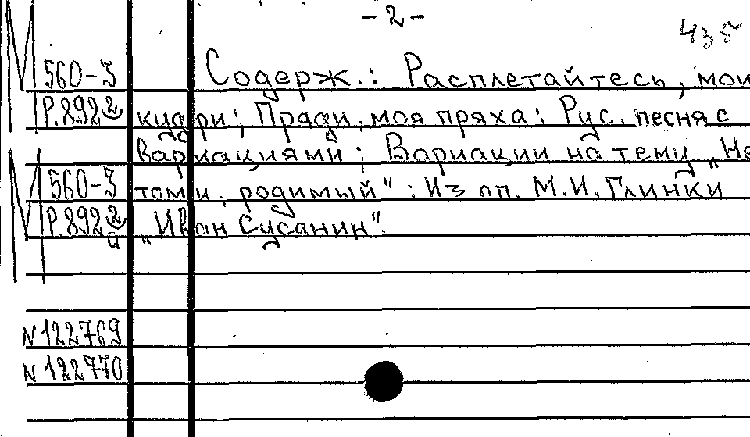 -2-
435
М 560-3 Содерж.: Расплетайтесь, мои
Р.892 кудри; Пряди, моя пряха: Рус. песня с
вариациями; Вариации на тему „Не
М 560-3 томи, родимый": Из оп. М.И. Глинки
Р.892 „Иван Сусанин".
N122769
N122770